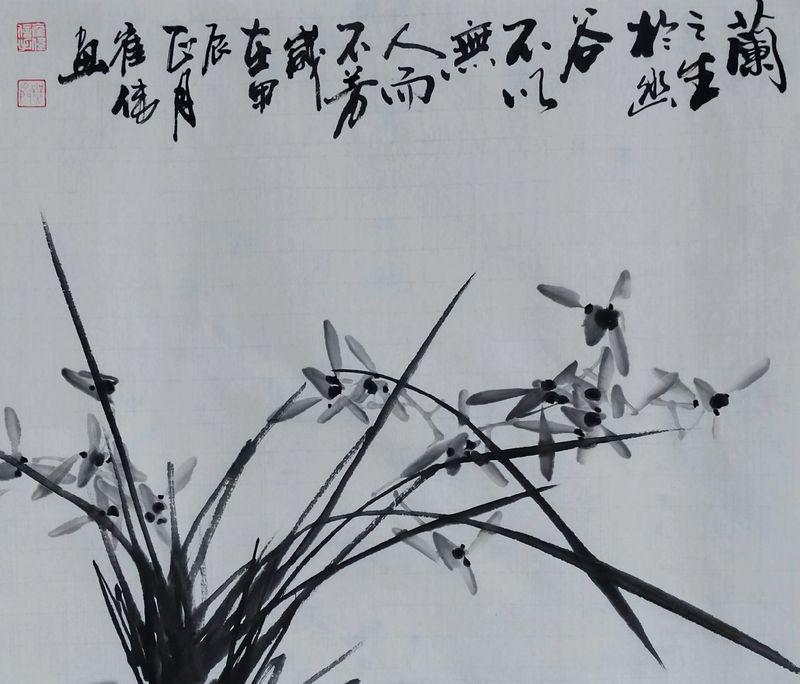 蘭
之生
於幽
谷
不以
無
人而
不芳
歲
在甲
辰
正月
崔
画